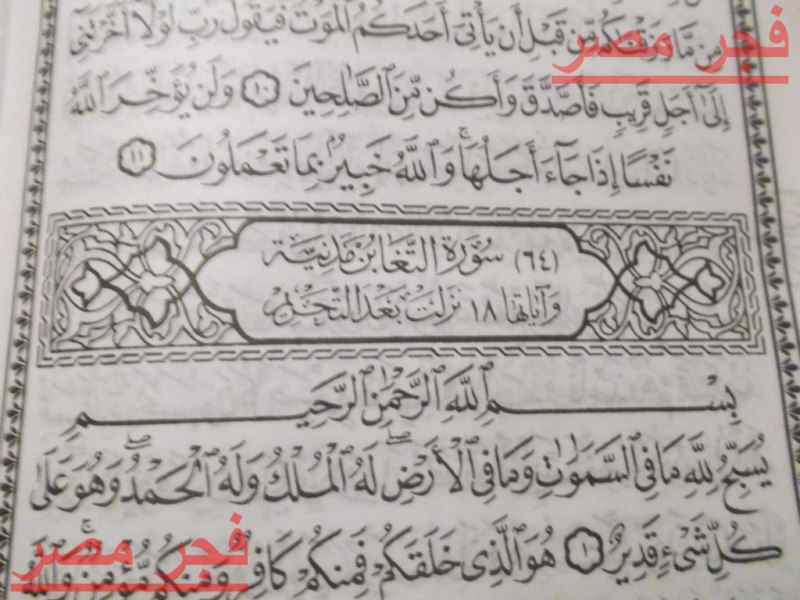 فجر مصر
مِن مَّا رَزَقْنَٰكُم مِّن قَبْلِ أَن يَأْتِىَ أَحَدَكُمُ ٱلْمَوْتُ فَيَقُولَ رَبِّ لَوْلَآ أَخَّرْتَنِىٓ
إِلَىٰٓ أَجَلٍ قَرِيبٍ فَأَصَّدَّقَ وَأَكُن مِّنَ ٱلصَّٰلِحِينَ ١٠ وَلَن يُؤَخِّرَ ٱللَّهُ
نَفْسًا إِذَا جَآءَ أَجَلُهَا ۚ وَٱللَّهُ خَبِيرٌۢ بِمَا تَعْمَلُونَ ١١
(٦٤) سُورَة التَّغَابُن مَدنيَّة
وَآيَاتها ١٨ نزَلَتْ بَعْدَ التَّحْرِيم
بِسْمِ ٱللَّهِ ٱلرَّحْمَٰنِ ٱلرَّحِيمِ
يُسَبِّحُ لِلَّهِ مَا فِى ٱلسَّمَٰوَٰتِ وَمَا فِى ٱلْأَرْضِ ۖ لَهُ ٱلْمُلْكُ وَلَهُ ٱلْحَمْدُ ۖ وَهُوَ عَلَىٰ
كُلِّ شَىْءٍ قَدِيرٌ ١ هُوَ ٱلَّذِى خَلَقَكُمْ فَمِنكُمْ كَافِرٌ وَمِنكُم مُّؤْمِنٌ ۚ وَٱللَّهُ
فجر مصر